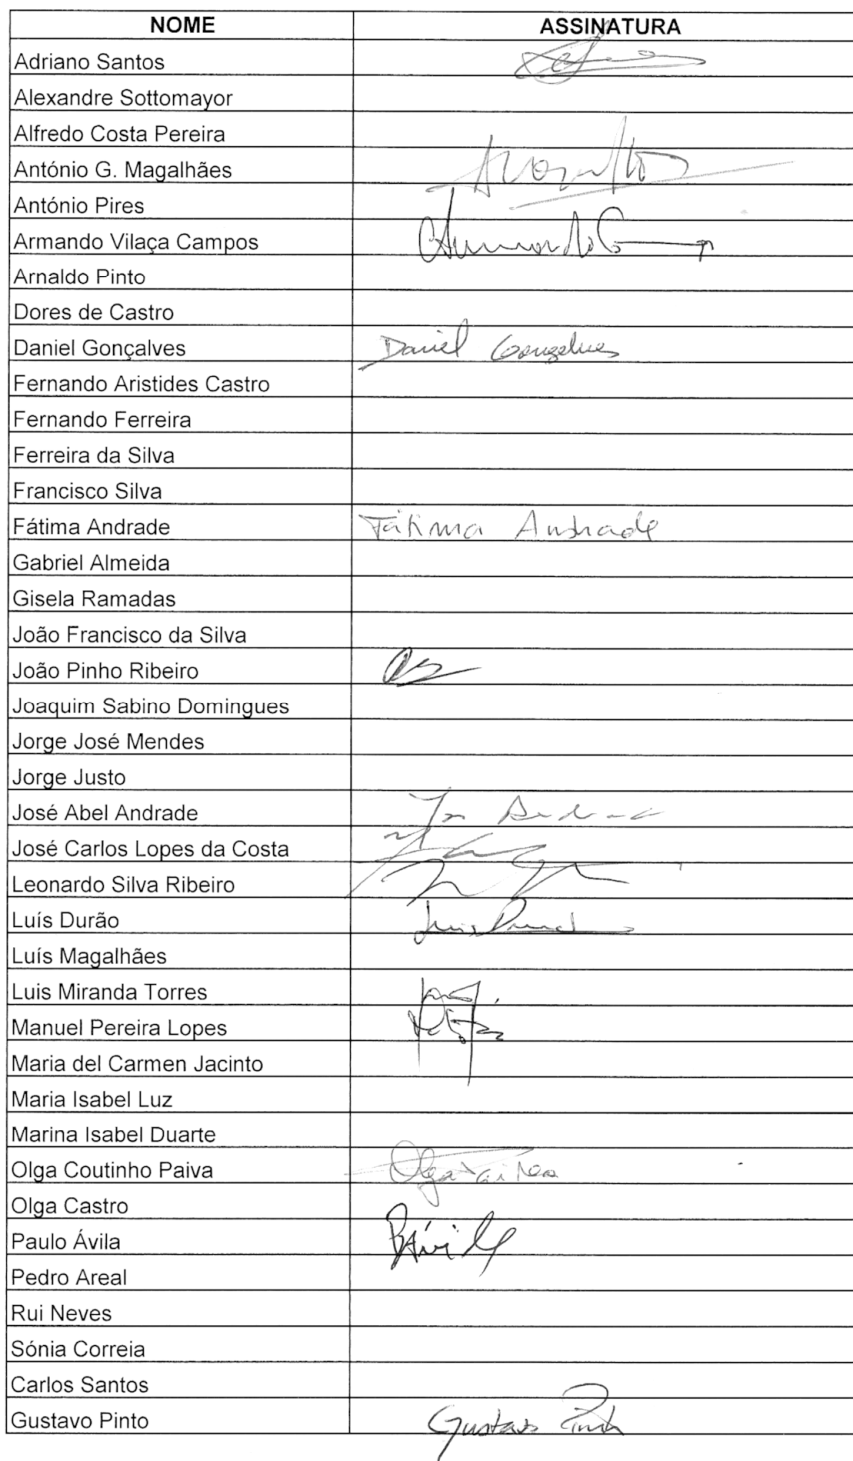 NOME ASSINATURA
Adriano Santos
Alexandre Sottomayor
Alfredo Costa Pereira
António G. Magalhães
António Pires
Armando Vilaça Campos
Arnaldo Pinto
Dores de Castro
Daniel Gonçalves Daniel Gonçalves
Fernando Aristides Castro
Fernando Ferreira
Ferreira da Silva
Francisco Silva
Fátima Andrade Fátima Andrade
Gabriel Almeida
Gisela Ramadas
João Francisco da Silva
João Pinho Ribeiro
Joaquim Sabino Domingues
Jorge José Mendes
Jorge Justo
José Abel Andrade
José Carlos Lopes da Costa
Leonardo Silva Ribeiro
Luís Durão
Luís Magalhães
Luis Miranda Torres
Manuel Pereira Lopes
Maria del Carmen Jacinto
Maria Isabel Luz
Marina Isabel Duarte
Olga Coutinho Paiva
Olga Castro
Paulo Ávila
Pedro Areal
Rui Neves
Sónia Correia
Carlos Santos
Gustavo Pinto Gustavo Pinto